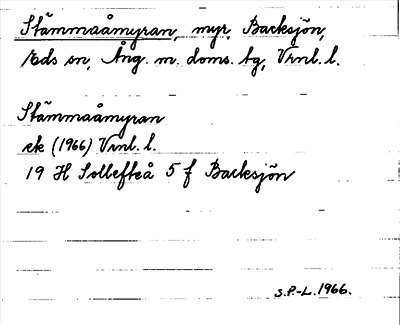 Stämmaåmyran, myr, Backsjön,
Eds sn, Ång. m. doms. tg, Vrnl. l.
Stämmaåmyran
ek (1966) Vrnl. l.
19 H Sollefteå 5 f Backsjön
S.P.-L. 1966.